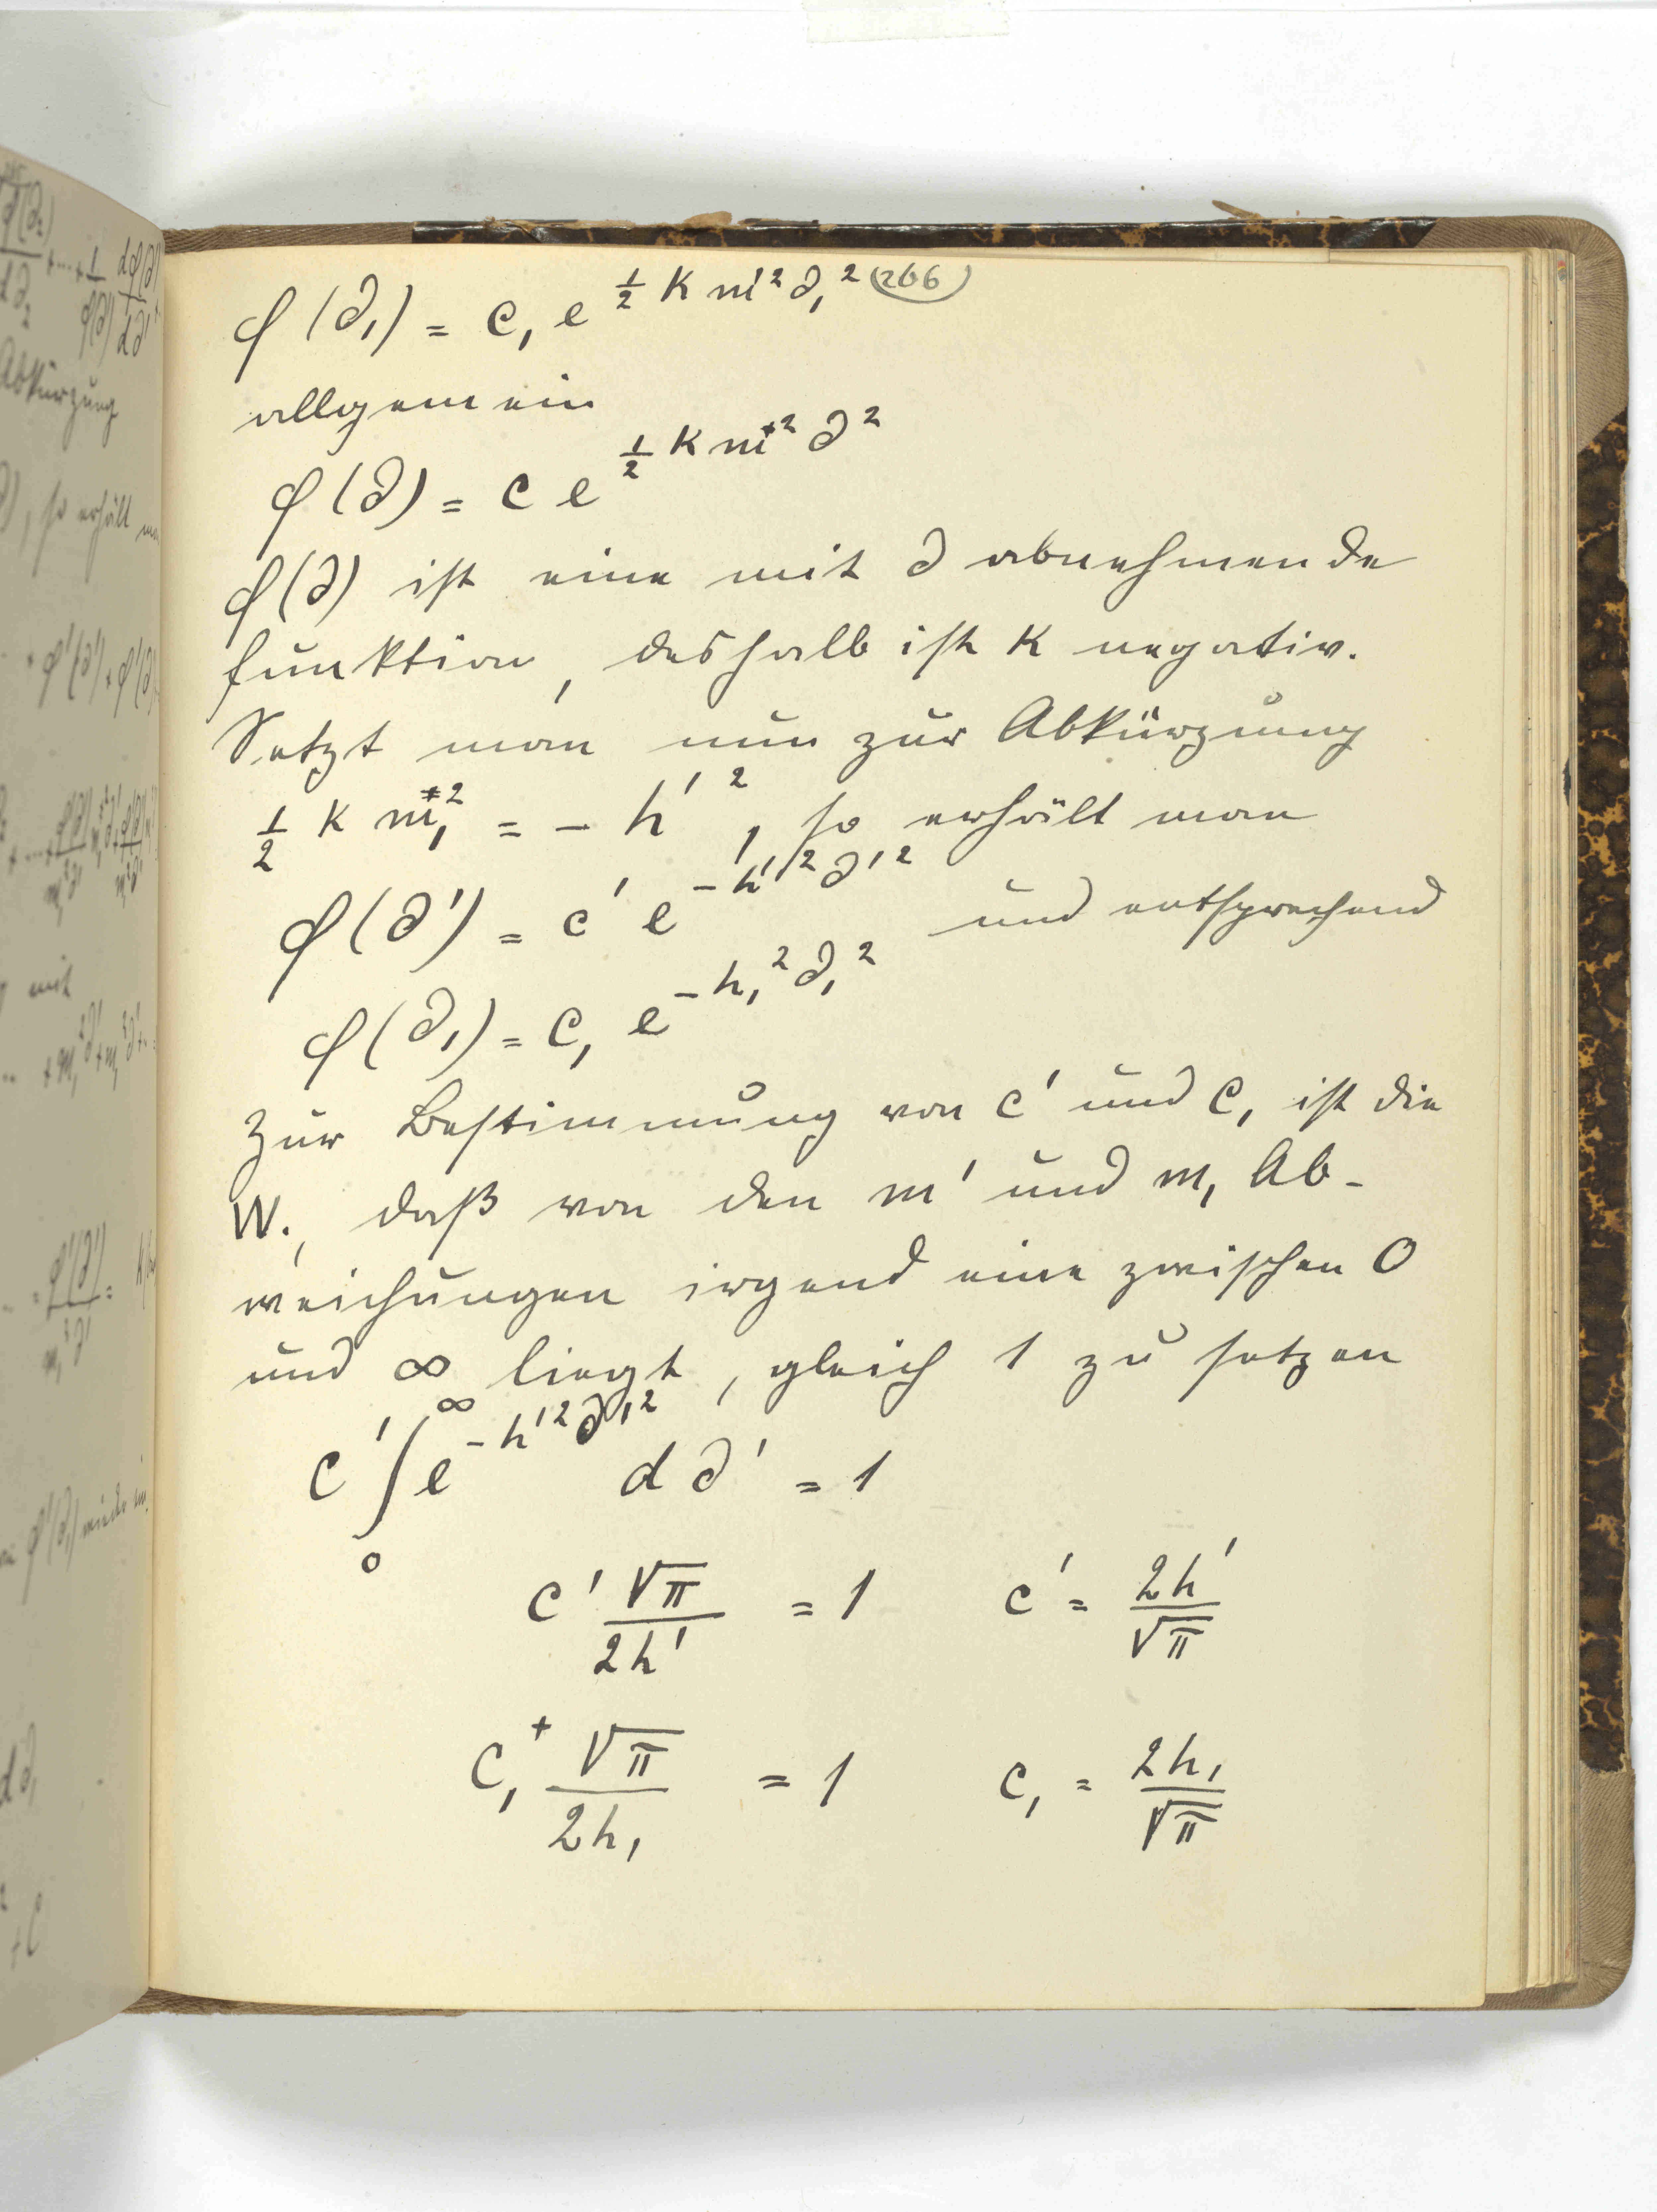 (266)
φ(∂₁) = c₁ e^{½ K m'² ∂₁²}
allgemein
φ(∂) = c e^{½ K m² ∂²}
φ(∂) ist eine mit ∂ abnehmende
funktion, deshalb ist K negativ.
Setzt man nun zur Abkürzung
½ K m₁² = - h'², so erhält man
φ(∂') = c' e^{-h'² ∂'²} und entsprechend
φ(∂₁) = c₁ e^{-h₁² ∂₁²}
Zur Bestimmung von c' und c₁ ist die
W., daß von den m' und m₁ Ab-
weichungen irgend eine zwischen 0
und ∞ liegt, gleich 1 zu setzen
c' ∫₀^∞ e^{-h'² ∂'²} d∂' = 1
c' √π/2h' = 1 c' = 2h'/√π
c₁⁺ √π/2h₁ = 1 c₁ = 2h₁/√π